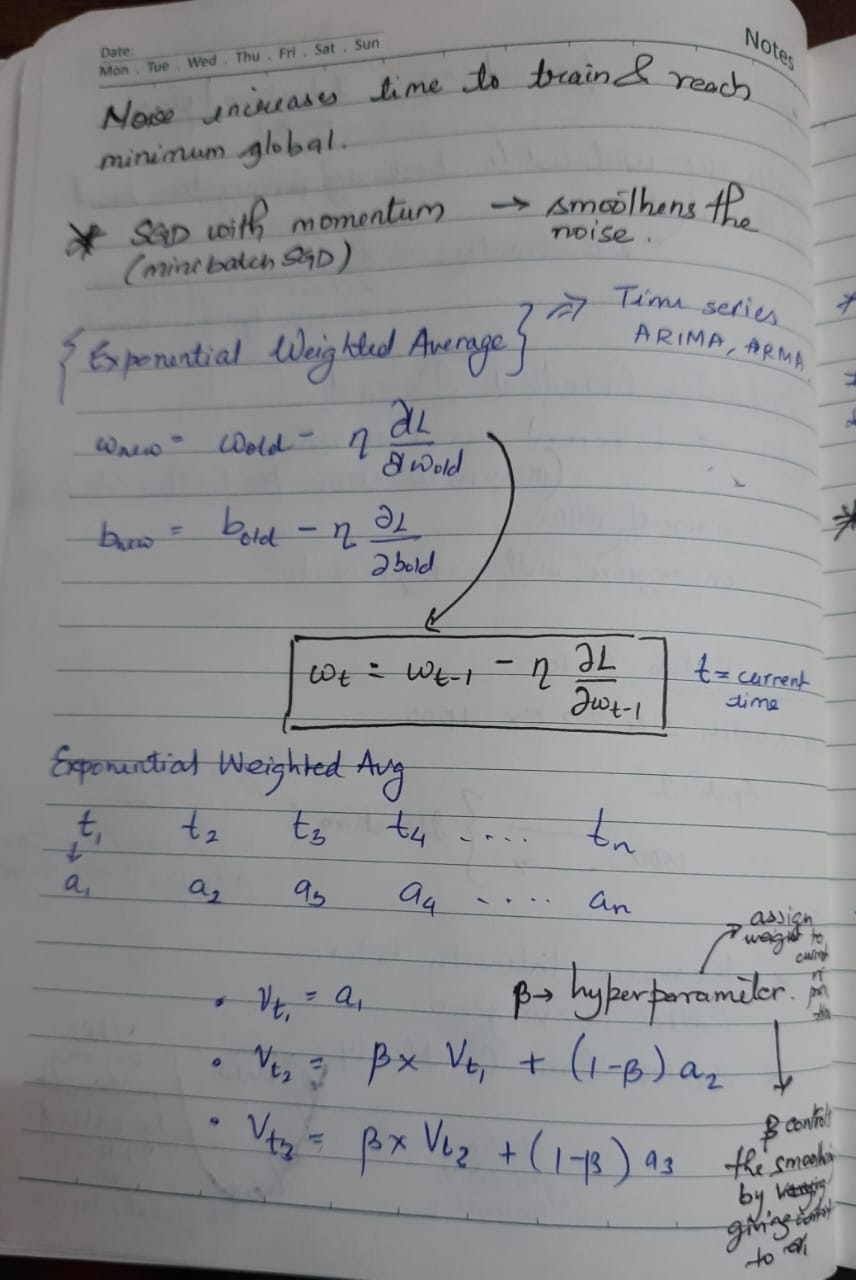 Date:
Mon . Tue . Wed . Thu . Fri . Sat . Sun
Notes
Noise increases time to train & reach
minimum global.
* SGD with momentum → smoothens the
noise.
(mini batch SGD)
{Exponential Weighted Average} ⇒ Time series
ARIMA, ARMA
ω_new = ω_old - η ∂L/∂ω_old
b_new = b_old - η ∂L/∂b_old
ω_t = ω_t-1 - η ∂L/∂ω_t-1
t = current
time
Exponential Weighted Avg
t₁ t₂ t₃ t₄ .... t_n
↓
a₁ a₂ a₃ a₄ ..... a_n
assign
weight to
β → hyperparameter.
• V_t₁ = a₁
• V_t₂ = β x V_t₁ + (1-β) a₂
• V_t₃ = β x V_t₂ + (1-β) a₃
β controls
the smoothin
by
giving
to